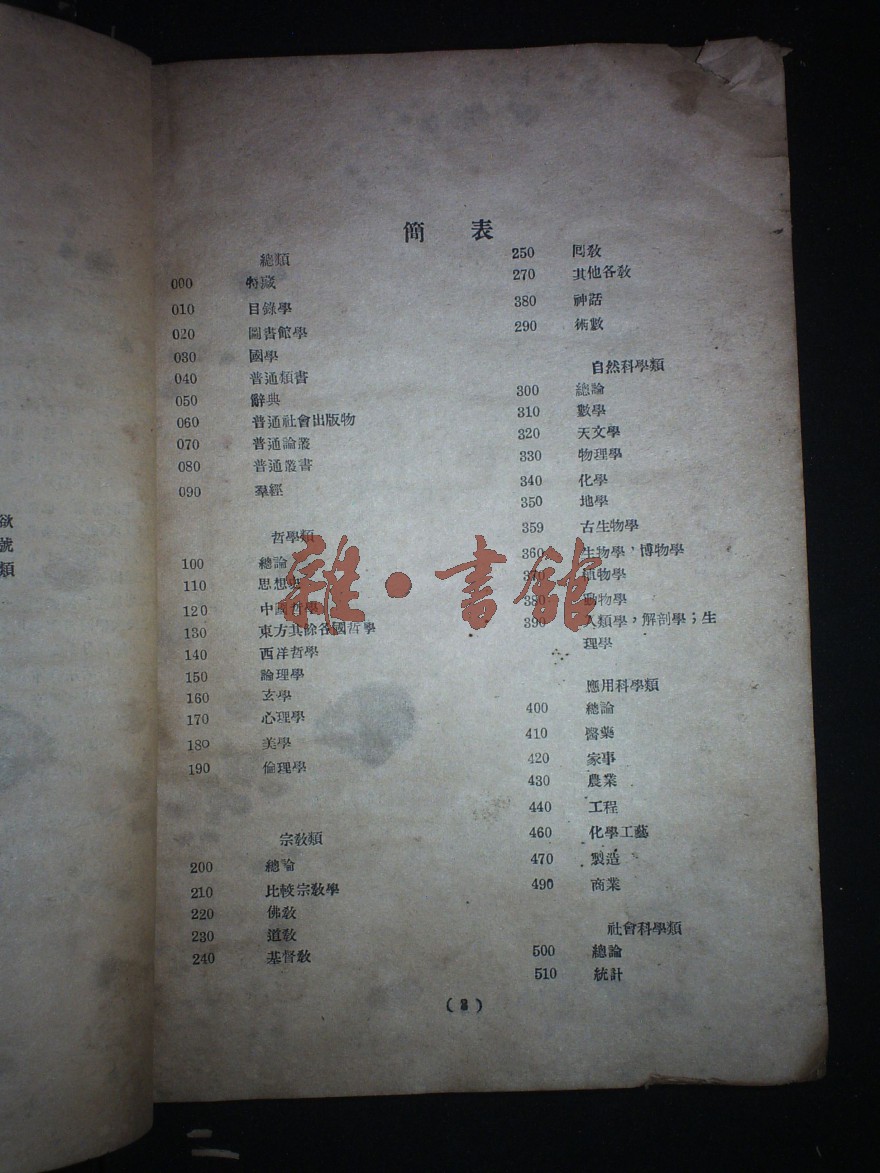 欲
號
類
簡 表
總類
000 特藏
010 目錄學
020 圖書館學
030 國學
040 普通類書
050 辭典
060 普通社會出版物
070 普通論叢
080 普通叢書
090 羣經
哲學類
100 總論
110 思想史
120 中國哲學
130 東方其餘各國哲學
140 西洋哲學
150 論理學
160 玄學
170 心理學
180 美學
190 倫理學
宗教類
200 總論
210 比較宗教學
220 佛教
230 道教
240 基督教
250 回教
270 其他各教
380 神話
290 術數
自然科學類
300 總論
310 數學
320 天文學
330 物理學
340 化學
350 地學
359 古生物學
360 生物學，博物學
370 植物學
380 動物學
390 人類學，解剖學；生
理學
應用科學類
400 總論
410 醫藥
420 家事
430 農業
440 工程
460 化學工藝
470 製造
490 商業
社會科學類
500 總論
510 統計
雜·書館